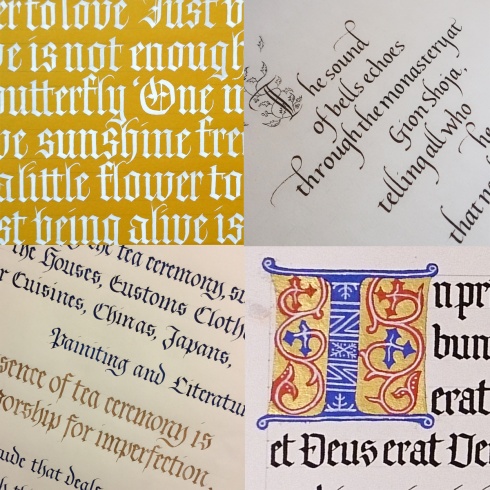 to love Just
is not enough
butterfly 'One
sunshine
a little flower to
being alive is
he sound
of bells echoes
through the monastery at
Gion Shoja,
telling all who
he
that
the tea ceremony,
the Houses, Customs
Cuisines, Chinas, Japans,
Painting and
of tea ceremony is
worship for imperfection,
that
In pr
bun
erat
et Deus erat